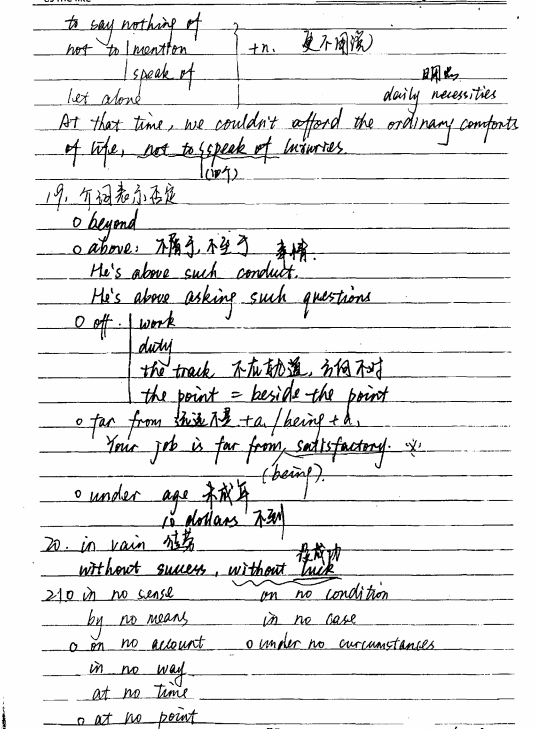 to say nothing of
not to mention
speak of
+n. 更不用说)
let alone
日用品
daily necessities
At that time, we couldn't afford the ordinary comforts
of life, not to speak of luxuries.
19. 介词表示否定
o beyond
o above: 不屑于, 不至于 事情.
He's above such conduct.
He's above asking such questions
o off. work
duty
the track 不在轨道, 方向不对
the point = beside the point
o far from 远远不是 +a. / being + a.
Your job is far from satisfactory.
(being).
o under age 未成年
10 dollars 不到
20. in vain 徒劳
没成功
without success, without luck
21 o in no sense on no condition
by no means in no case
o on no account o under no curcumstances
in no way
at no time
o at no point